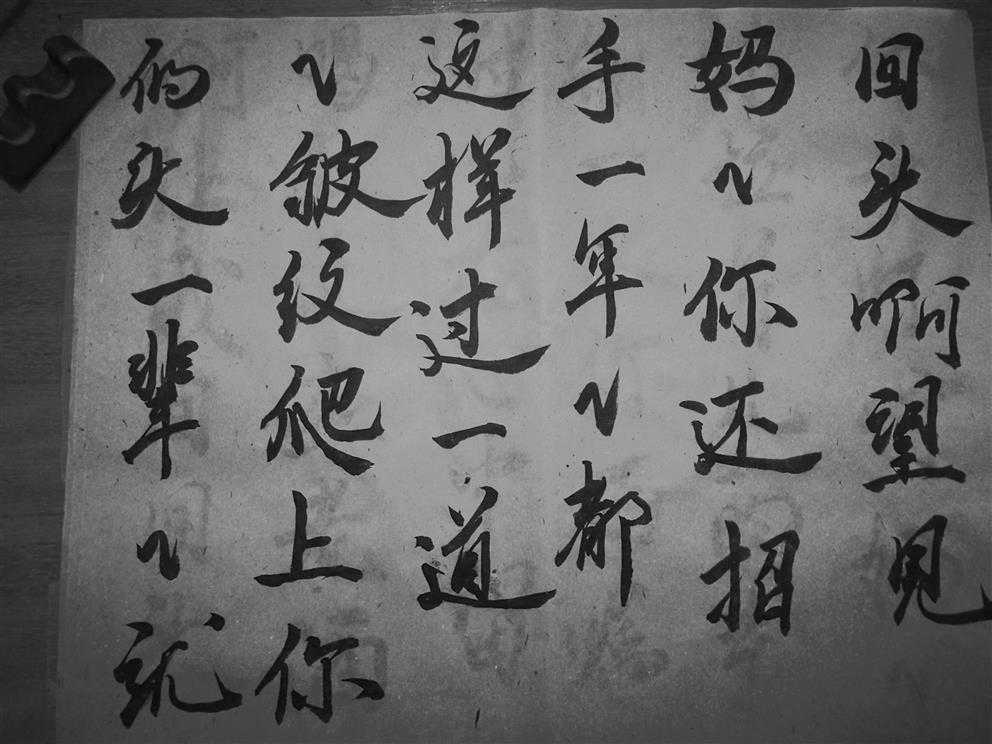 回头啊望见
妈〻你还招
手一年〻都
这样过一道
〻皱纹爬上你
的头一辈〻就